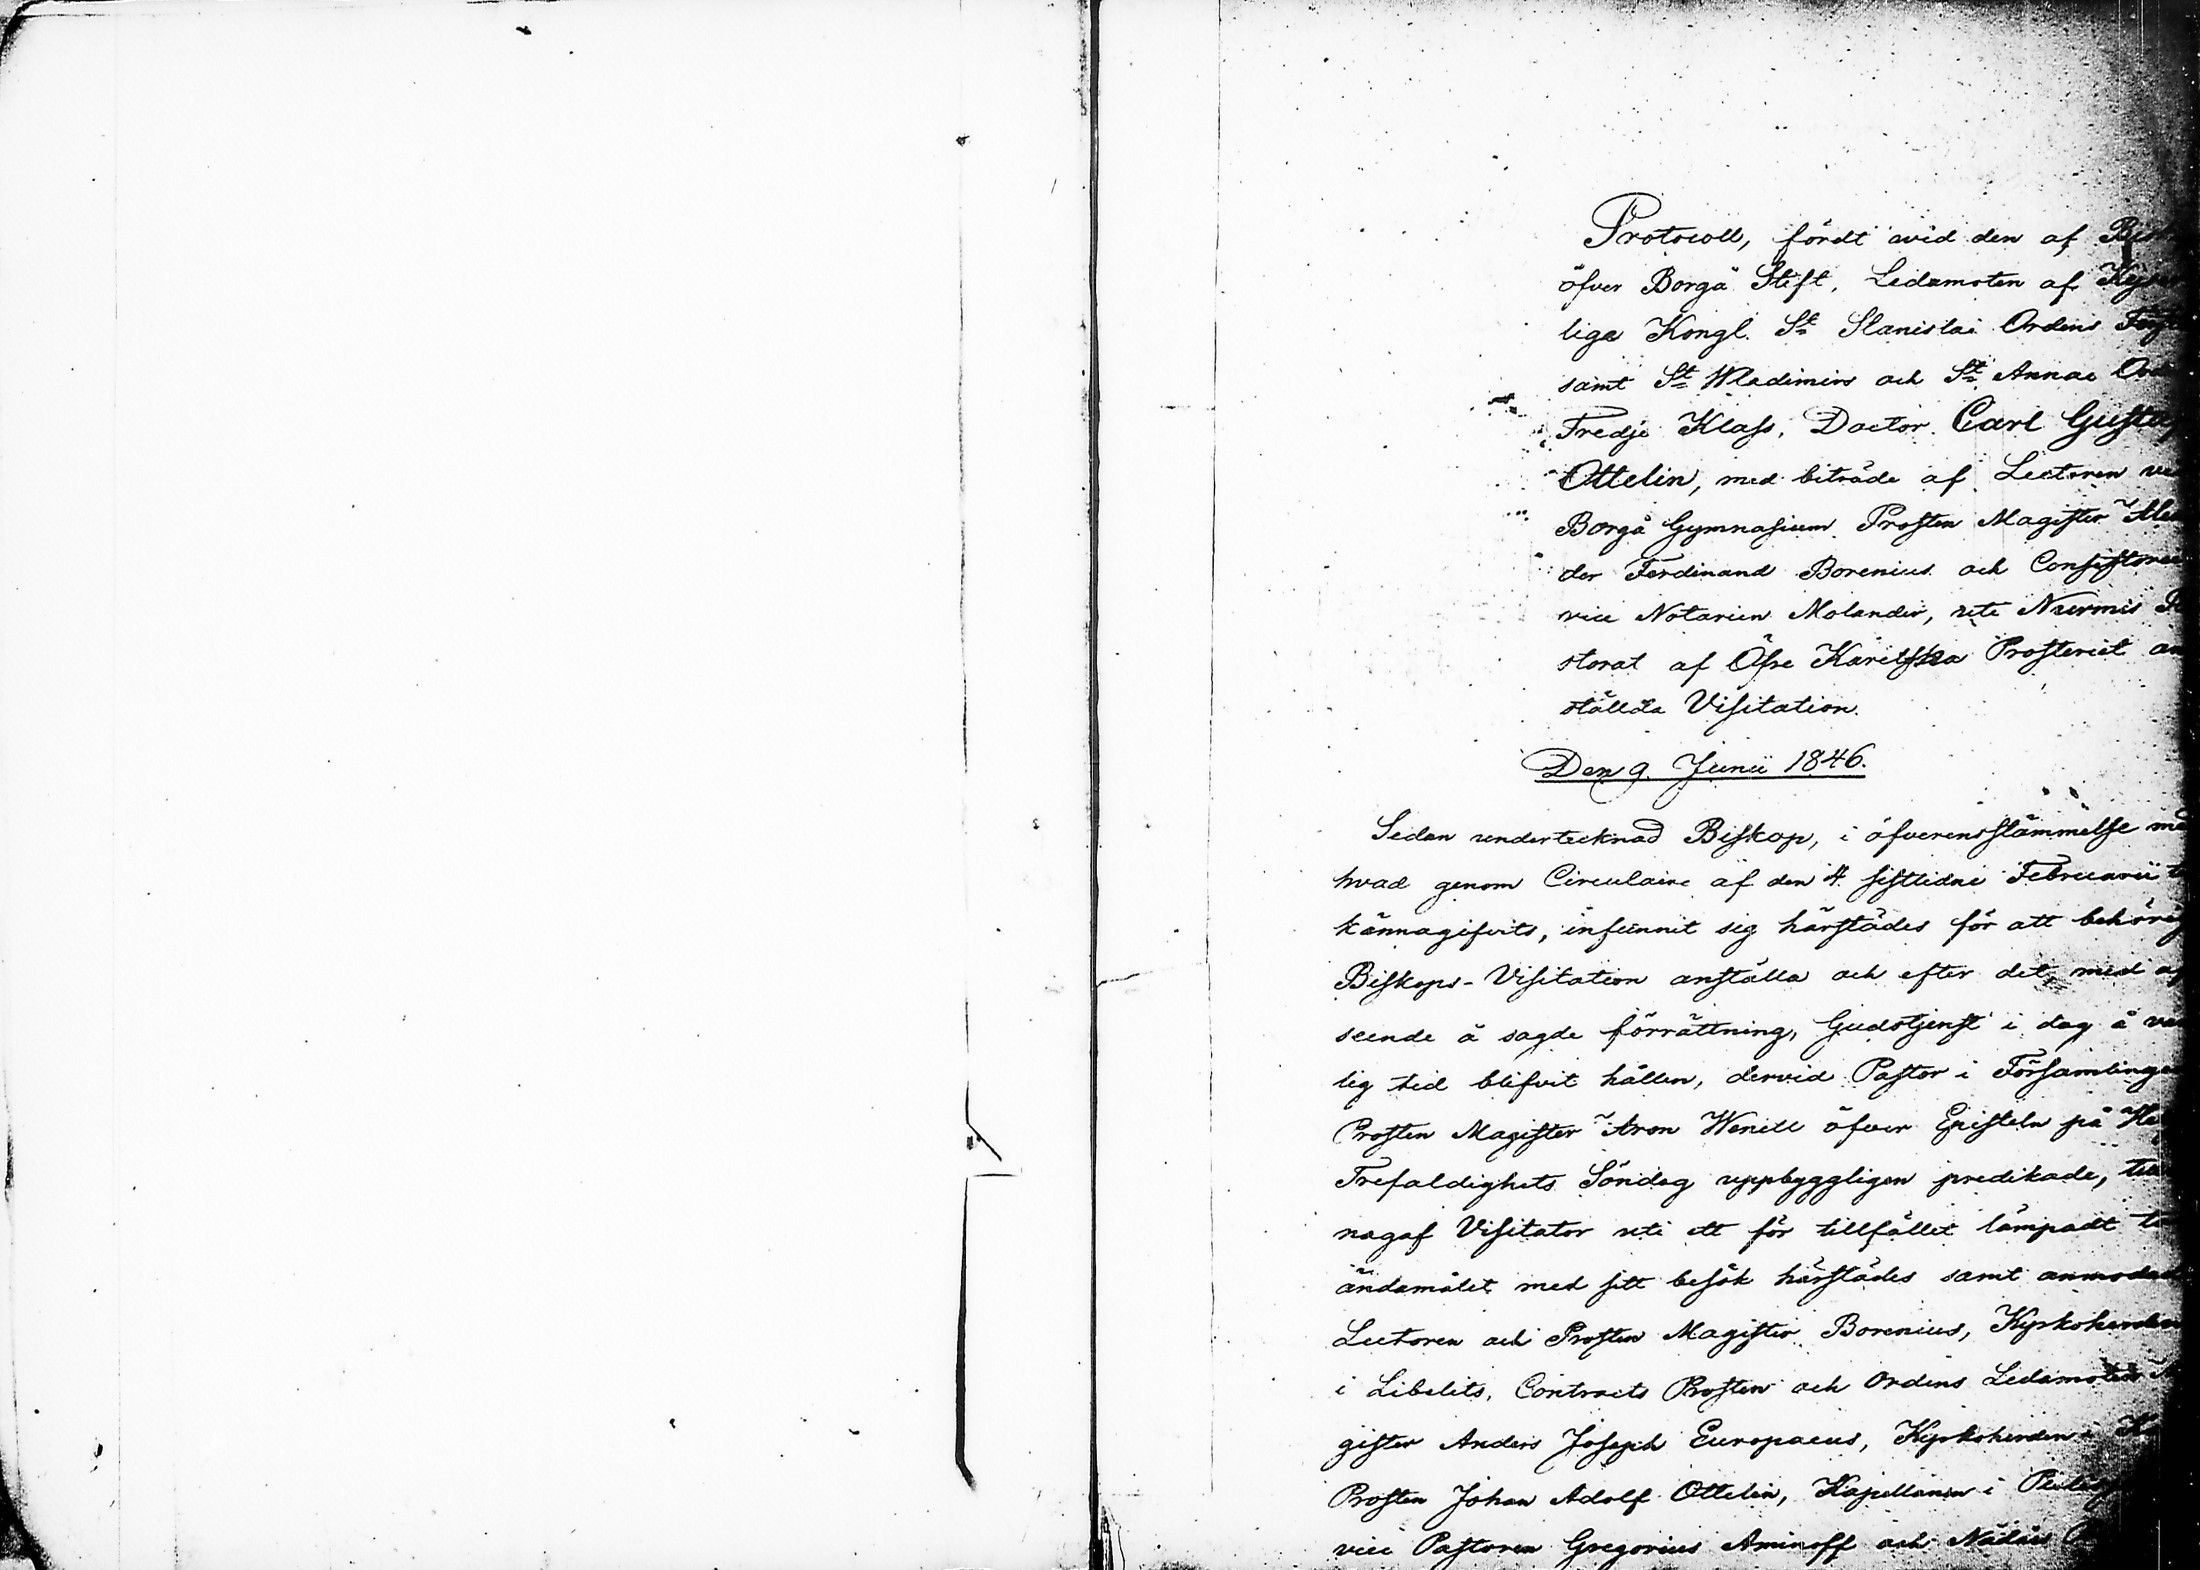 Protocoll, fördt wid den af
öfver Borgå Stift, Ledamoten af
liga Kongl. St Stanislai Ordens
samt St Wladimirs och St Annae
Tredje Klass, Doctor Carl Gustaf
Ottelin, med biträde af Lectoren
Borgå Gymnasium Prosten Magister
der Ferdinand Borenius och Consistorii
vice Notarien Molander, uti Nurmis
storat af Öfre Karelska Prosteriet an
ställda Visitation.
Den 9 Junii 1846.
Sedan undertecknad Biskop, i öfverensstämmelse med
hvad genom Circulaire af den 4 sistlidne Februarii
kännagifvits, infunnit sig härstädes för att behörig
Biskops-Visitation anställa och efter det, med af
seende å sagde förrättning, Gudstjenst i dag å van
lig tid blifvit hållen, dervid Pastor i Församlingen
Prosten Magister Aron Wenell öfver Episteln på
Trefaldighets Söndag uppbyggligen predikade,
nagaf Visitator uti ett för tillfället lämpadt
ändamålet med sitt besök härstädes samt anmodade
Lectoren och Prosten Magister Borenius, Kyrkoherden
i Libelits, Contracts Prosten och Ordens Ledamoten
gister Anders Joseph Europaeus, Kyrkoherden i
Prosten Johan Adolf Ottelin, Kapellanen i
vice Pastoren Gregorius Aminoff och Nådårs